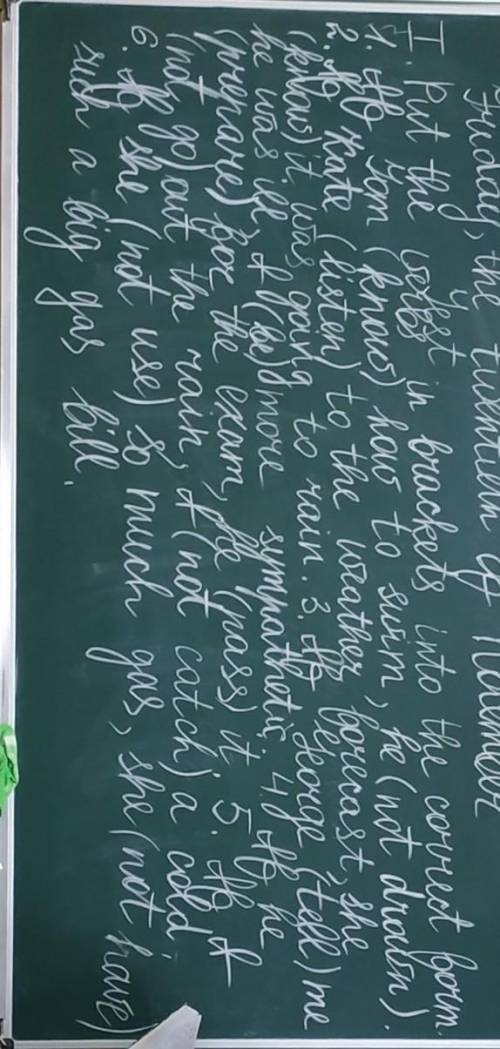 Friday, the twentieth of November
I. Put the verbs in brackets into the correct form.
1. If you (know) how to swim, he (not drown).
2. If Kate (listen) to the weather forecast, she
(know) it was going to rain. 3. If George (tell) me
he was ill, I (be) more sympathetic. 4. If he
(prepare) for the exam, he (pass) it 5. If I
(not go) out the rain, I (not catch) a cold
6. If she (not use) so much gas, she (not have)
such a big gas bill.